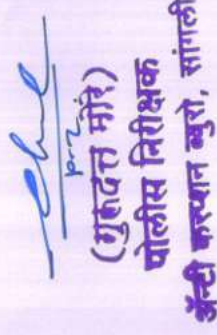 (गुरुदत्त मोरे)
पोलीस निरीक्षक
अॅन्टी करप्शन ब्युरो, सांगली